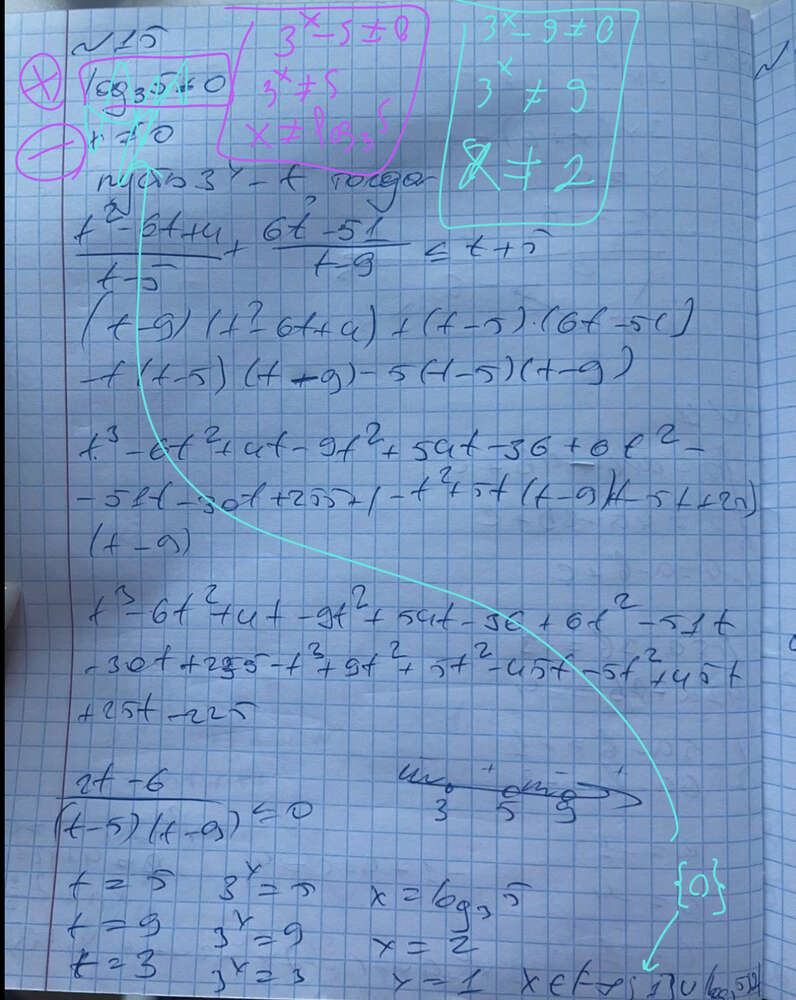 №15
log₃5≠0
x≠0
3ˣ-5≠0
3ˣ≠5
x≠log₃5
3ˣ-9≠0
3ˣ≠9
x≠2
пусть 3ˣ-t тогда
(t²-6t+4)/(t-5) + (6t-51)/(t-9) ≤ t+5
(t-9)(t²-6t+4)+(t-5)·(6t-51)
-t(t-5)(t-9)-5(t-5)(t-9)
t³-6t²+4t-9t²+54t-36+6t²-
-51t-30t+255+(-t²+5t(t-9)(-5t+25)
(t-9)
t³-6t²+4t-9t²+54t-36+6t²-51t
-30t+255-t³+9t²+5t²-45t-5t²+45t
+25t-225
(2t-6)/((t-5)(t-9)) ≤0
- + - +
3 5 9
t=5 3ˣ=5 x=log₃5
t=9 3ˣ=9 x=2
t=3 3ˣ=3 x=1
{0}